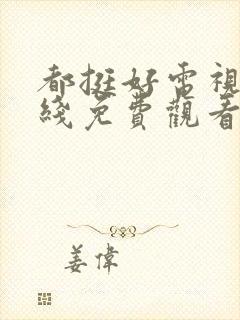 都挺好電視
綫免費觀看
姜偉